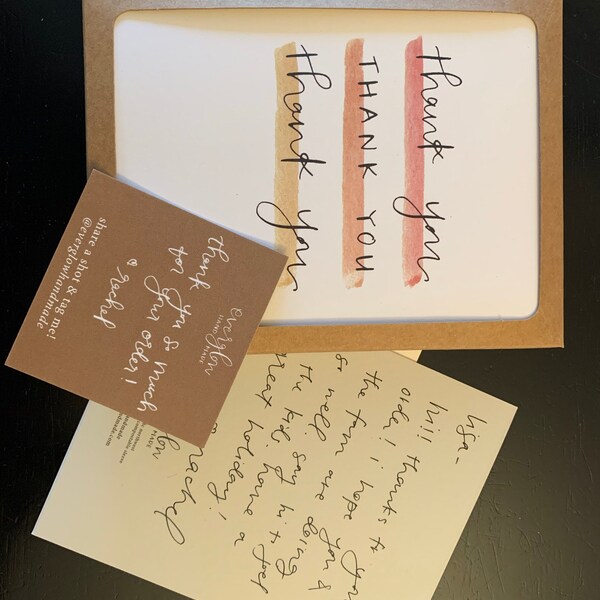 thank you
THANK YOU
thank you
everglow
HANDMADE
thank you so much
for your order!
rachel
share a shot & tag me!
@everglowhandmade
lisa-
hi! thanks for you
order! i hope you &
the fam are doing
so well
the kids say hi + joel
great holiday! have a
rachel